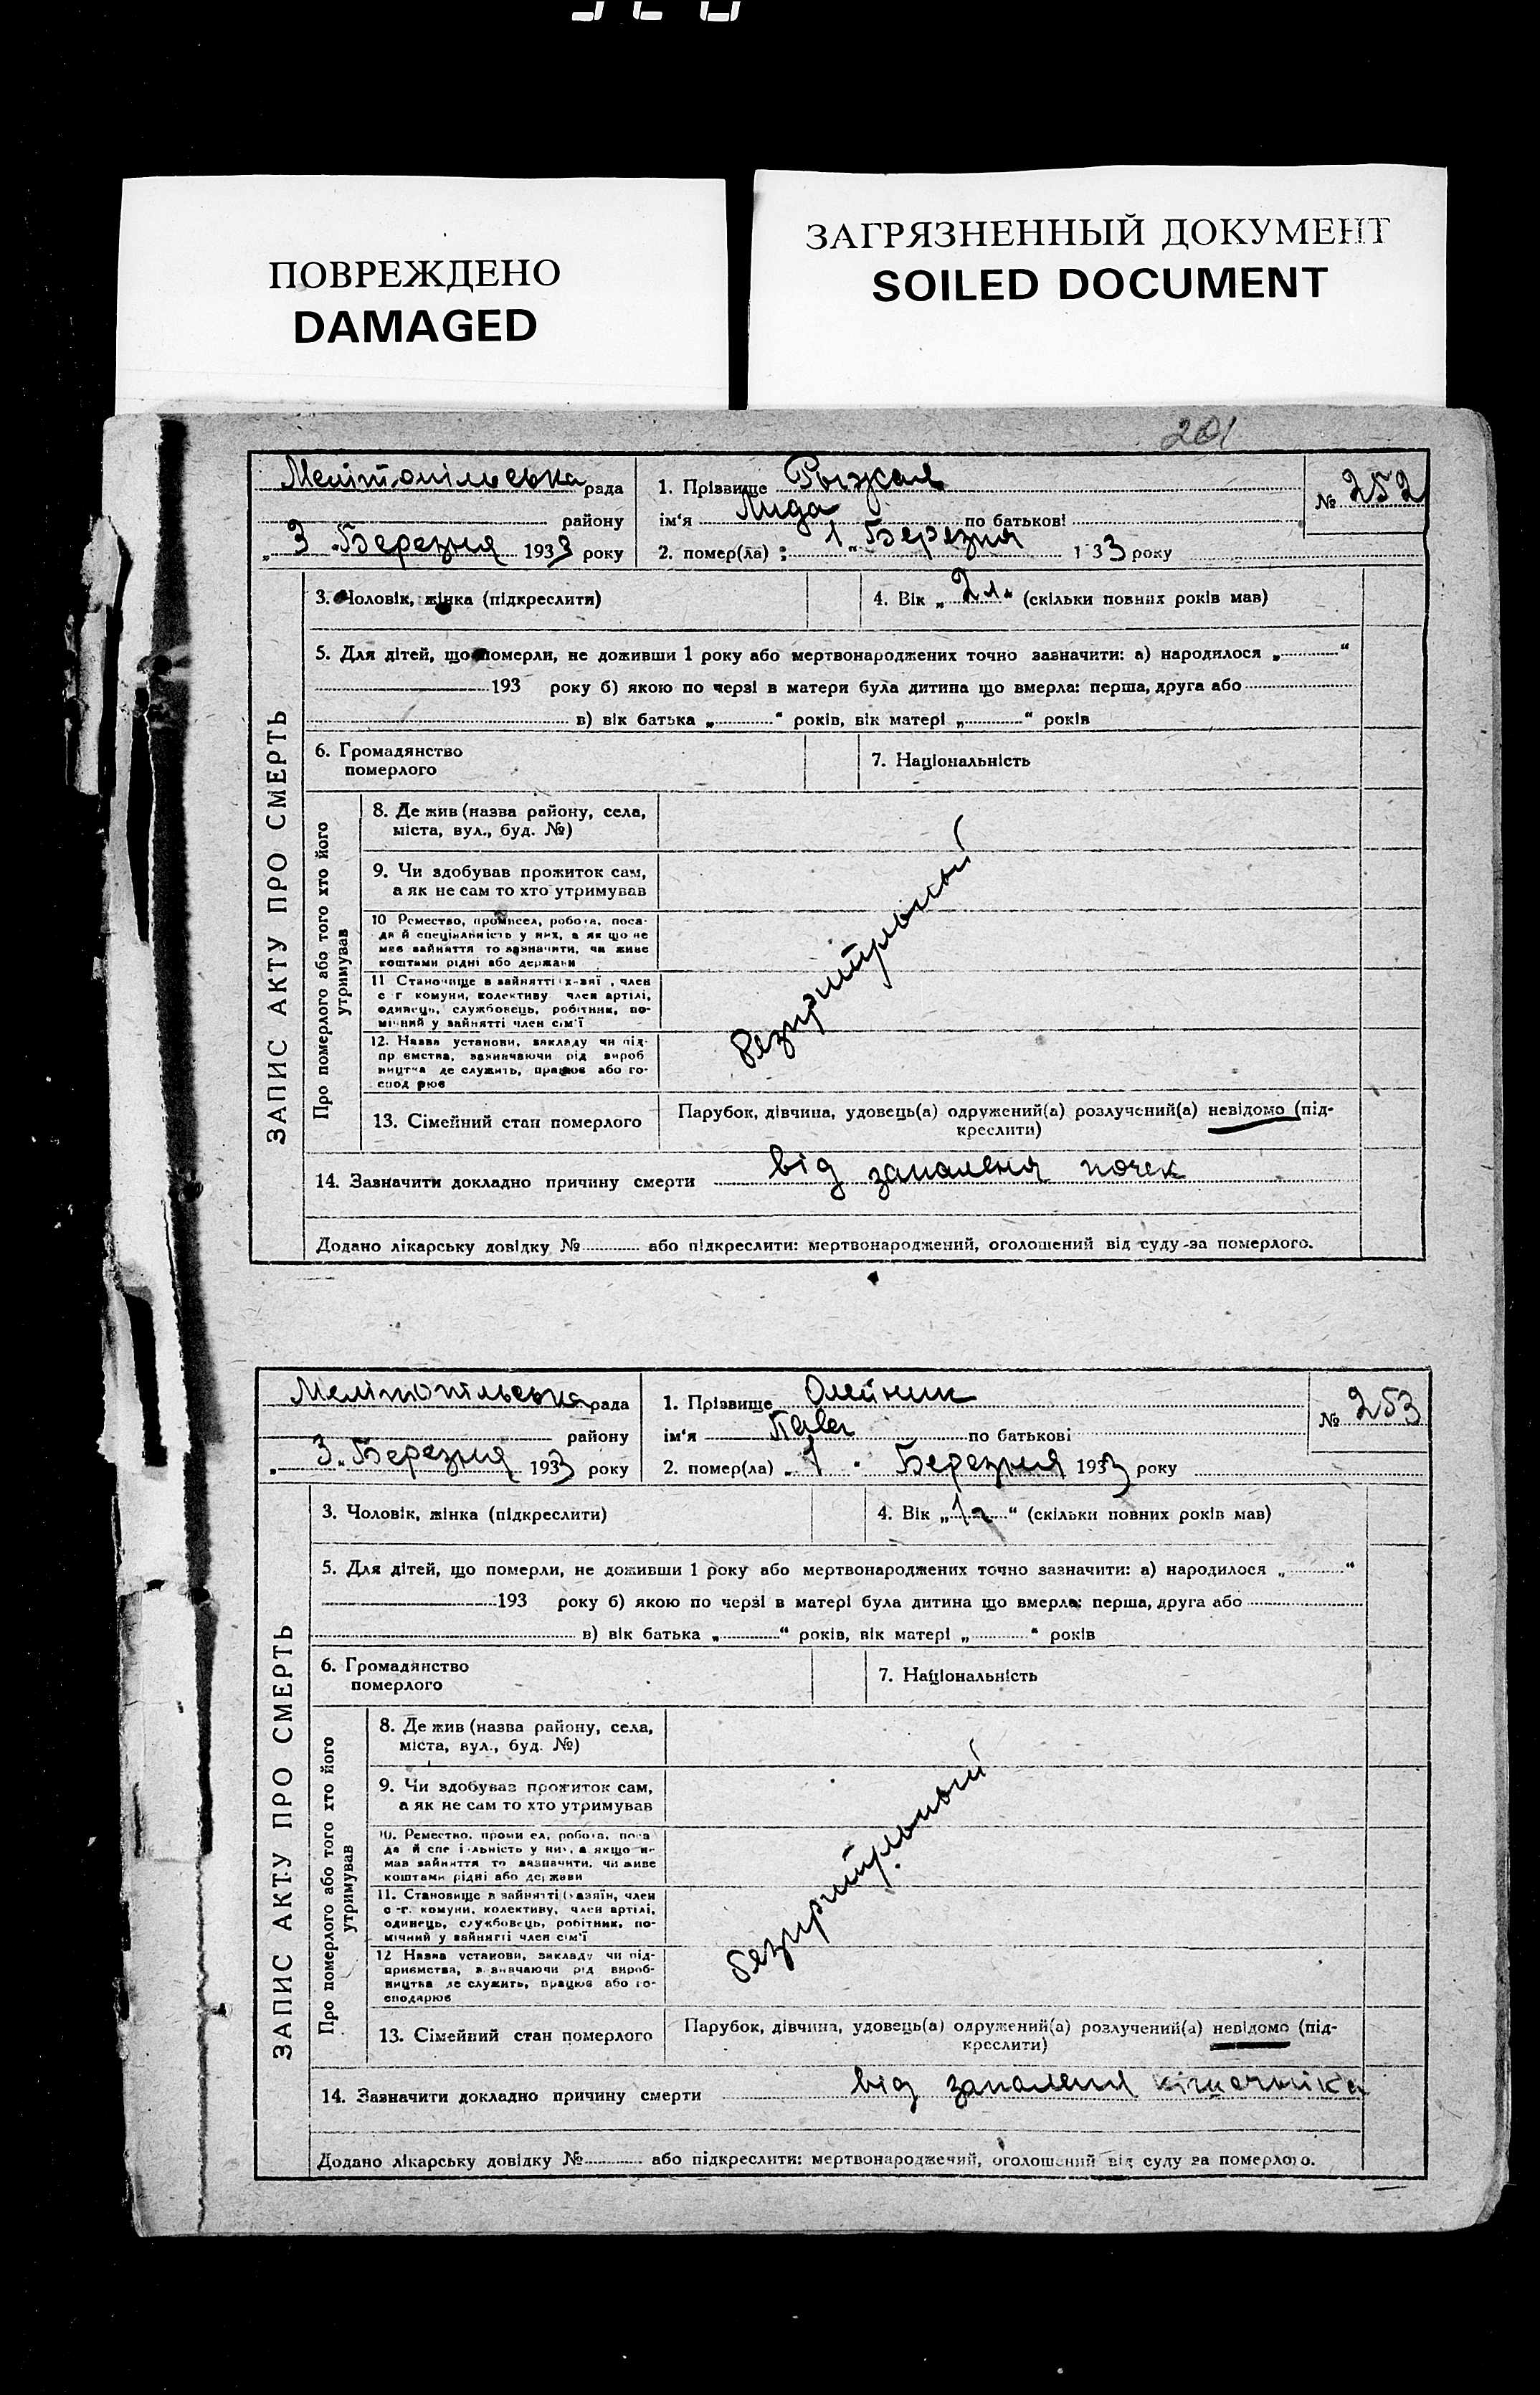 ПОВРЕЖДЕНО
DAMAGED
ЗАГРЯЗНЕННЫЙ ДОКУМЕНТ
SOILED DOCUMENT
201
Мелітопільська рада
району
„ 3 „ Березня 1933 року
1. Прізвище Рыжая
ім'я Лида по батькові
2. помер(ла) „ 1 „ Березня 1 33 року
№ 252
ЗАПИС АКТУ ПРО СМЕРТЬ
3. Чоловік, жінка (підкреслити)
4. Вік „ 2 л. “ (скільки повних років мав)
5. Для дітей, що померли, не доживши 1 року або мертвонароджених точно зазначити: а) народилося „ “
193 року б) якою по черзі в матери була дитина що вмерла: перша, друга або
в) вік батька „ “ років, вік матері „ “ років
6. Громадянство
померлого
7. Національність
Про померлого або того хто його
утримував
8. Де жив (назва району, села,
міста, вул., буд. №)
9. Чи здобував прожиток сам,
а як не сам то хто утримував
10 Ремество, промисел, робота, поса-
да й спеціальність у них, а як що не
мав зайняття то зазначити, чи живе
коштами рідні або держави
11 Становище в зайнятті х-зяї , член
с г комуни, колективу член артілі,
одинець, службовець, робітник, по-
мічний у зайнятті член сім'ї
12. Назва установи, закладу чи під-
пр ємства, зазначаючи рід вироб
ництва де служить, працює або го-
спод рює
безпритрьный
13. Сімейний стан померлого
Парубок, дівчина, удовець(а) одружений(а) розлучений(а) невідомо (під-
креслити)
14. Зазначити докладно причину смерти від запаленя почек
Додано лікарську довідку № або підкреслити: мертвонароджений, оголошений від суду-за померлого.
Мелітопільська рада
району
„ 3 „ Березня 1933 року
1. Прізвище Олейник
ім'я Пава по батькові
2. помер(ла) „ 1 “ Березня 1933 року
№ 253
ЗАПИС АКТУ ПРО СМЕРТЬ
3. Чоловік, жінка (підкреслити)
4. Вік „ 1 л “ (скільки повних років мав)
5. Для дітей, що померли, не доживши 1 року або мертвонароджених точно зазначити: а) народилося „ “
193 року б) якою по черзі в матері була дитина що вмерла: перша, друга або
в) вік батька „ “ років, вік матері „ “ років
6. Громадянство
померлого
7. Національність
Про померлого або того хто його
утримував
8. Де жив (назва району, села,
міста, вул., буд. №)
9. Чи здобував прожиток сам,
а як не сам то хто утримував
10. Ремество, проми ел, робота, поса
да й спе і льність у них, а якщо н
мав зайняття то зазначити, чи живе
коштами рідні або держави
11. Становище в зайнятті (хазяїн, член
с -г. комуни, колективу, член артілі,
одинець, службовець, робітник, по-
мічний у зайнятті член сім'ї
12 Назва установи, закладу чи під-
приємства, зазначаючи рід вироб-
ництва де служить, працює або го-
сподарює
безпритрьный
13. Сімейний стан померлого
Парубок, дівчина, удовець(а) одружений(а) розлучений(а) невідомо (під-
креслити)
14. Зазначити докладно причину смерти від запаленя кішочника
Додано лікарську довідку № або підкреслити: мертвонароджений, оголошений від суду за померлого.